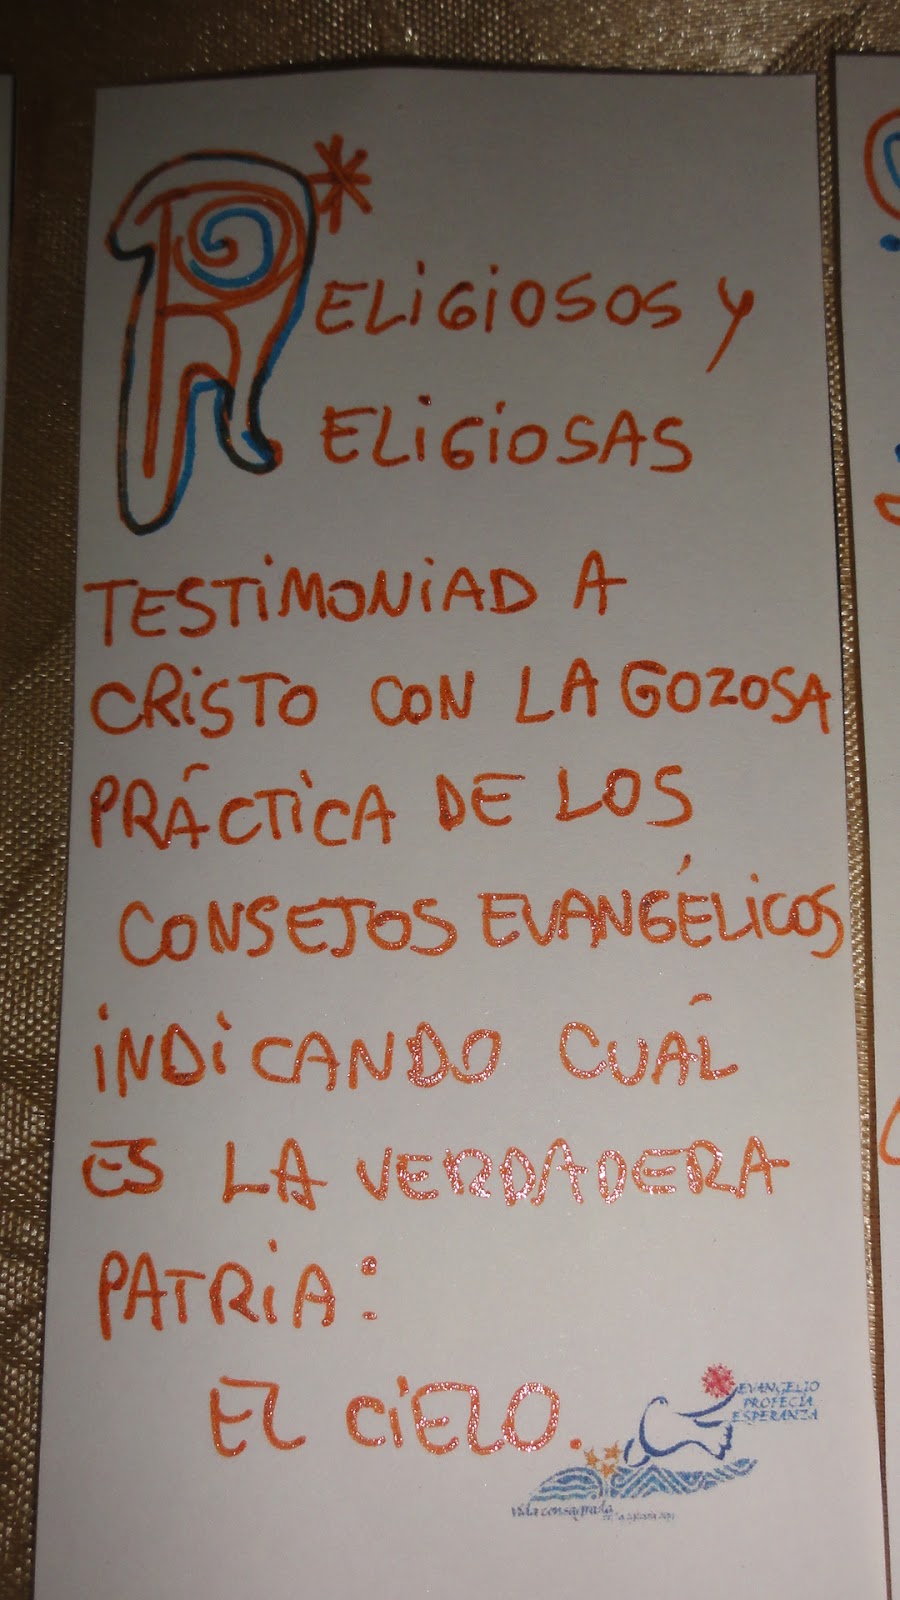 RELIGIOSOS Y
RELIGIOSAS
TESTIMONIAD A
CRISTO CON LA GOZOSA
PRÁCTICA DE LOS
CONSEJOS EVANGÉLICOS
INDICANDO CUÁL
ES LA VERDADERA
PATRIA:
EL CIELO.
EVANGELIO
PROFECÍA
ESPERANZA
vida consagrada